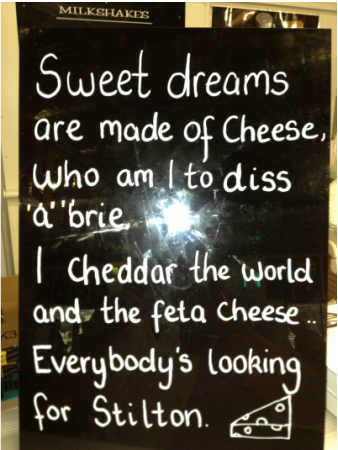 MILKSHAKES
Sweet dreams
are made of Cheese,
Who am I to diss
'a' 'brie,
I Cheddar the world
and the feta Cheese..
Everybody's looking
for Stilton.